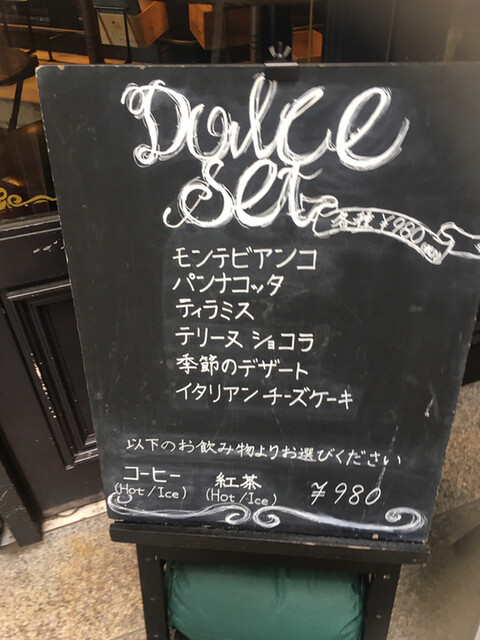 Dolce
Set
各種 ¥980
モンテビアンコ
パンナコッタ
ティラミス
テリーヌ ショコラ
季節のデザート
イタリアン チーズケーキ
以下のお飲み物よりお選びください
コーヒー 紅茶 ¥980
(Hot/Ice) (Hot/Ice)